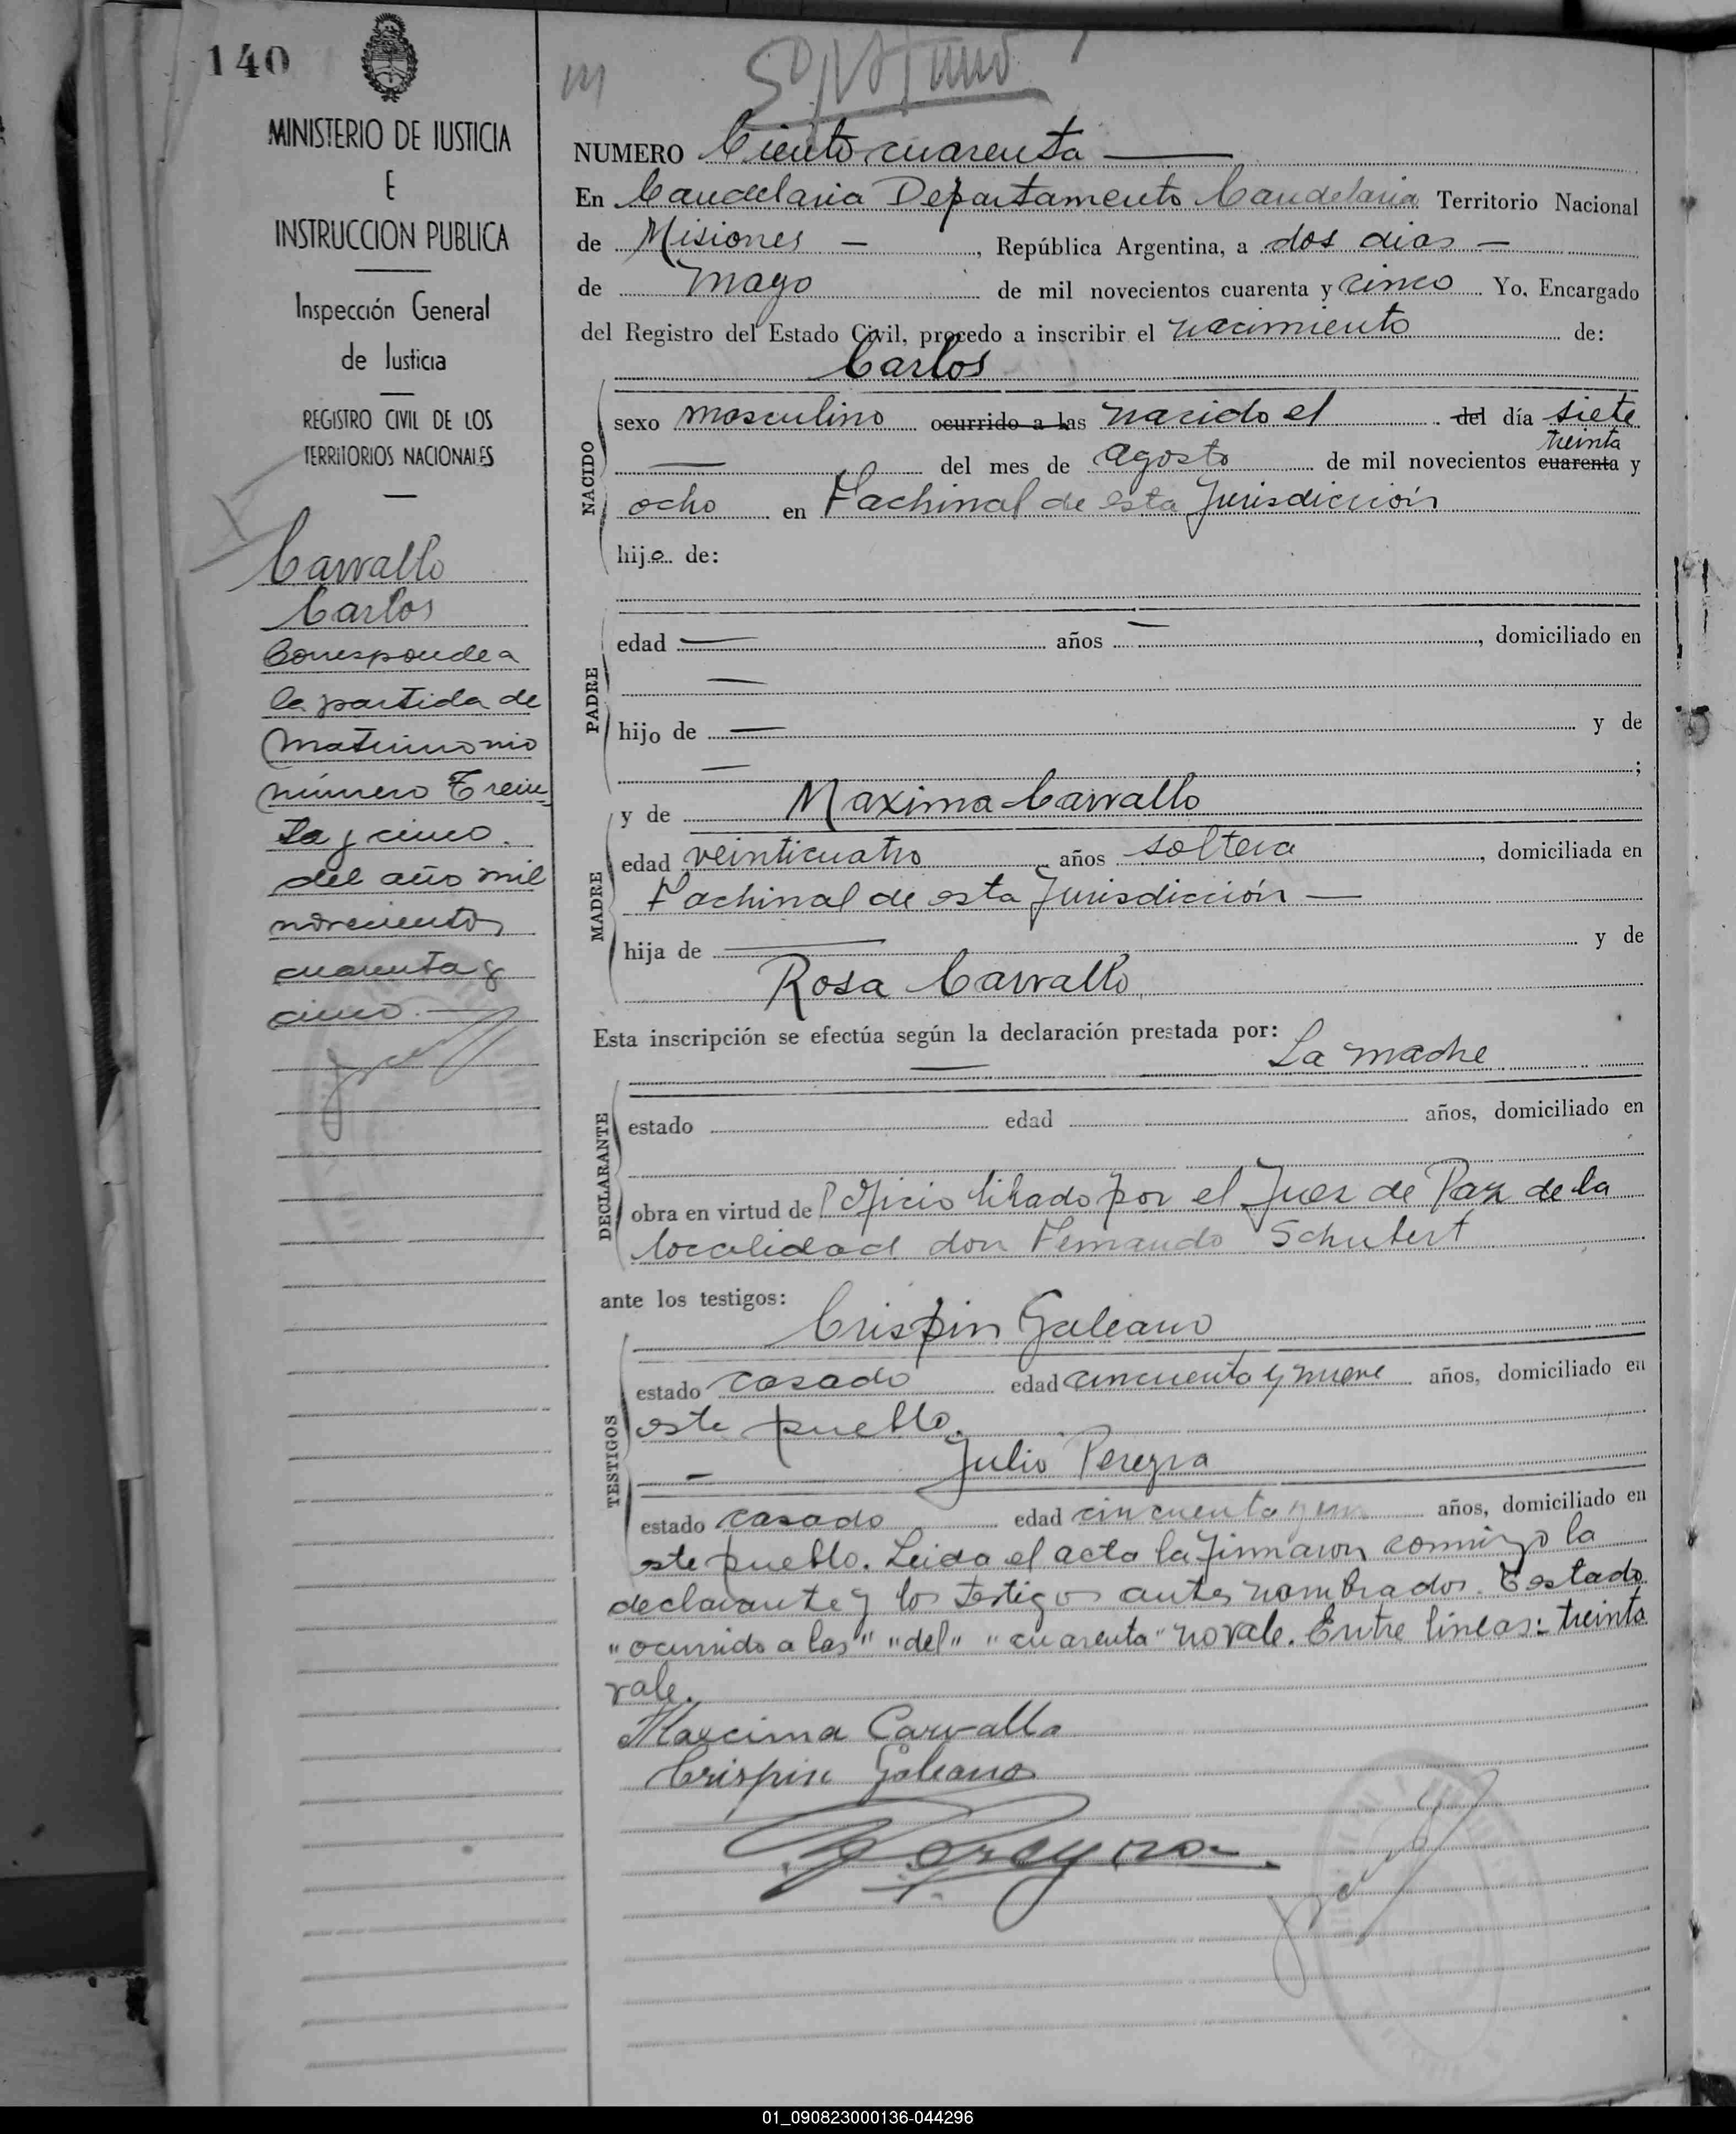 140
MINISTERIO DE JUSTICIA
E
INSTRUCCION PUBLICA
Inspección General
de Justicia
REGISTRO CIVIL DE LOS
TERRITORIOS NACIONALES
Carvallo
Carlos
Corresponde a
la partida de
matrimonio
número Trein
ta y cinco.
del año mil
novecientos
cuarenta y
cinco.
NUMERO Ciento cuarenta
En Candelaria Departamento Candelaria Territorio Nacional
de Misiones —, República Argentina, a dos dias —
de Mayo de mil novecientos cuarenta y cinco Yo, Encargado
del Registro del Estado Civil, procedo a inscribir el nacimiento de:
Carlos
NACIDO
sexo masculino ocurrido a las nacido el del día siete
treinta
— del mes de Agosto de mil novecientos cuarenta y
ocho en Fachinal de esta Jurisdicción
hijo de:
PADRE
edad — años —, domiciliado en
—
hijo de — y de
— ;
MADRE
y de Maxima Carvallo
edad veinticuatro años soltera, domiciliada en
Fachinal de esta Jurisdicción —
hija de — y de
Rosa Carvallo
Esta inscripción se efectúa según la declaración prestada por:
— La madre
DECLARANTE
estado edad años, domiciliado en
obra en virtud de Oficio librado por el Juez de Paz de la
localidad don Fernando Schubert
ante los testigos:
TESTIGOS
Crispin Galeano
estado casado edad cincuenta y nueve años, domiciliado en
este pueblo.
— Julio Pereyra
estado casado edad cincuenta y un años, domiciliado en
este pueblo. Leida el acta la firmaron conmigo la
declarante y los testigos antes nombrados. Testado
"ocurrido a las" "del" "cuarenta" no vale. Entre lineas: treinta
vale.
Maxcima Carvallo
Crispin Galeano
Pereyra
01_090823000136-044296